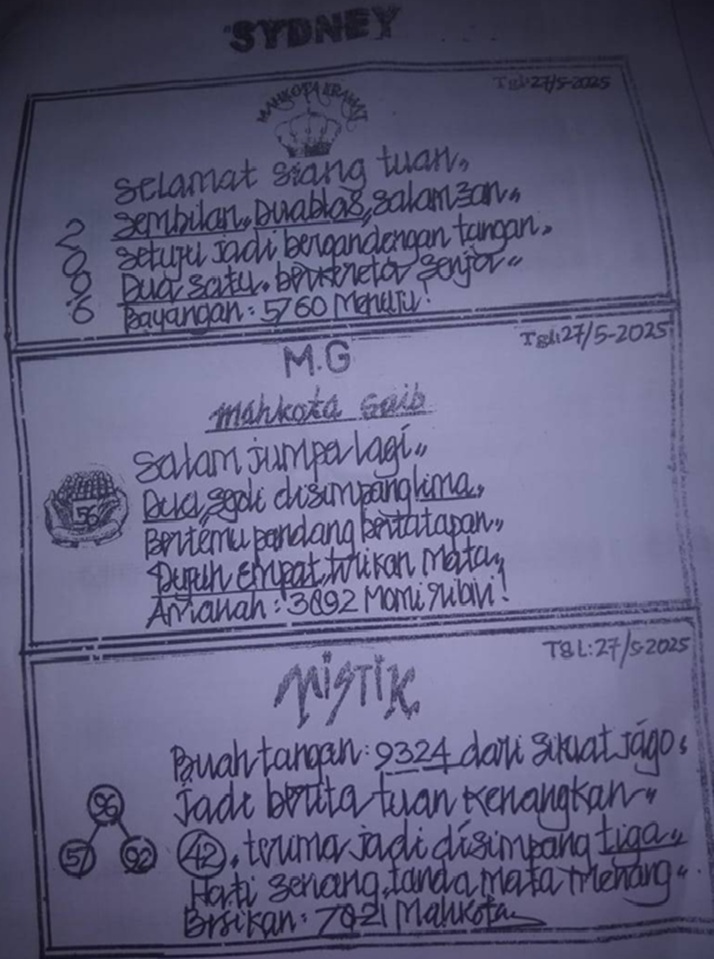 SYDNEY
Tgl:27/5-2025
MAHKOTA KRAMAT
Selamat siang tuan,,
Sembilan,, Duablas, salaman,,
Setuju jadi bergandengan tangan,,
Dua satu, berkereta senja,,
Bayangan: 5760 Menuju!
2
0
9
6
Tgl:27/5-2025
M.G
Mahkota Gaib
Salam jumpa lagi,,
56
Dua, sgdi disimpang lima,,
Bertemu pandang bertatapan,,
Tujuh Empat, Mata,,
Amanah: 3892
TGL:27/5-2025
MISTIK
Buah tangan: 9324 dari sikuat jago,
Jadi berita tuan kenangkan,,
96
57 92
42, terima jadi disimpang tiga,,
Hati senang, tanda mata Menang,,
Bisikan: 7021 Mahkota